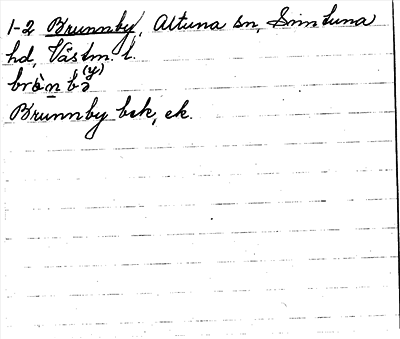 1-2 Brunnby, Altuna sn, Simtuna
hd, Västm. l.
bròn bə(y)
Brunnby bsk, ek.